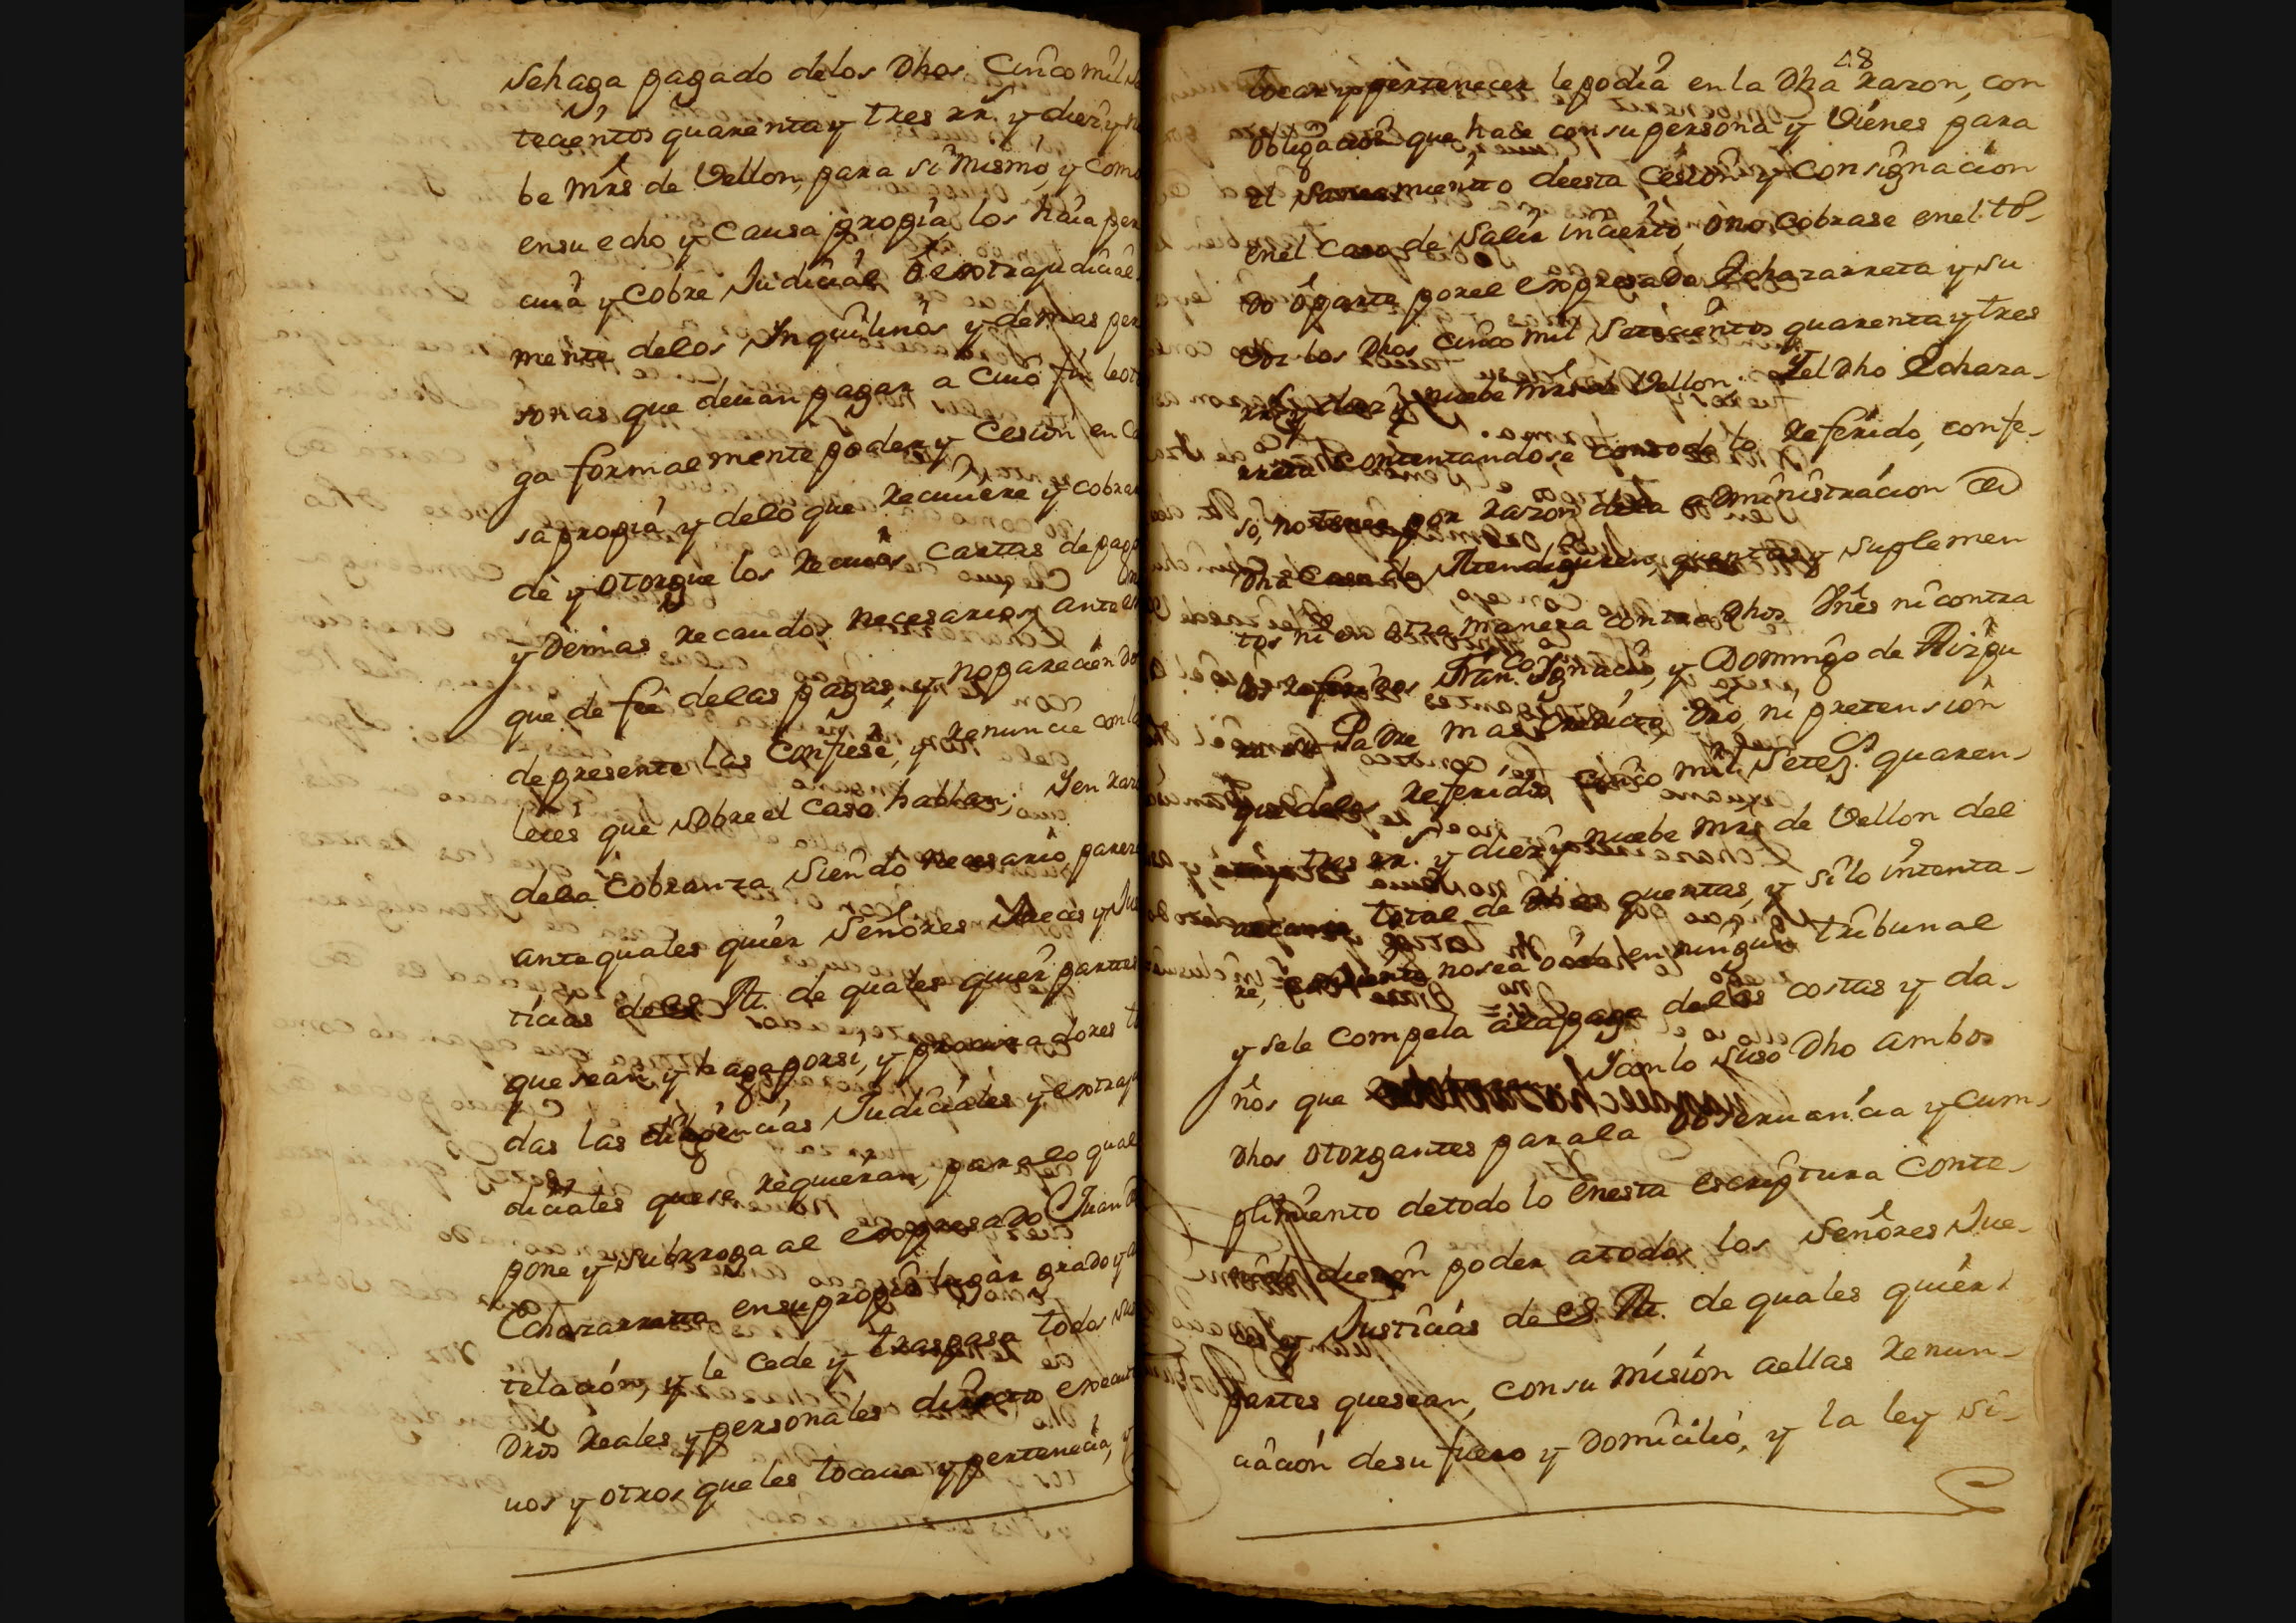 sehaga pagado delos Dhos. Cinco mil se
tecientos quarenta y tres rr.s y diez y nue
be Mrs de Vellon, para si mismo, y como
ensu echo y Causa propia los haia per
ciua y Cobre Judicial ô extrajudicial
mente delos Inquilinos y demas per
sonas que deuan pagar a cuio fin leotor
ga formalmente poder y Cesion en Cau
sa propia y delo que reciuiere y cobrare
dè y otorgue los reciuos Cartas de pago
y Demas recaudos necesarios ante
que de feè delas pagas, y no pareciendo
depresente las Confiese, y renuncie con las
leies que sobre el Caso hablan; Y en razon
dela Cobranza siendo necesario, parezca
ante quales quier Señores Jueces y Jus
ticias de S. M. de quales quier partes
que sean y haga por si, y procuradores to
das las diligencias Judiciales y extraju
diciales que se requieran, para lo qual
pone y subrroga al expresado Juan de
Echazarreta en su propio lugar grado y
telacion, y le Cede y traspasa todos sus
Dros Reales y personales directo executi
uos y otros que les tocaua y pertenecia, y
48
tocar y pertenecer le podia en la Dha razon, con
obligacion que hace con su persona y Vienes para
el Saneamiento de esta Cesion y Consignacion
en el Caso de Salir incierto, ô no Cobrase en el to-
do ô parte por el expresado Echazarreta y su
voz los Dhos Cinco mil Setecientos quarenta y tres
rr.s y diez y nuebe Mrs de Vellon; Y el Dho Echaza-
rreta Contentandose con todo lo referido, confe-
so, no tener por razon dela administracion de
Dha Casa de Atendiguren, quentas y suplemen
tos ni en otra manera contra Dhos Vnes ni contra
los referidos Fran.co Ignacio, y Domingo de Aizpu
ru su Padre mas Credito, Dro, ni pretension
que delos referidos Cinco mil Setez.s quaren-
ta y tres rr.s y diez y nuebe Mrs de Vellon del
alcance total de Dhas quentas, y si lo intenta-
re, no sea oido en ningun tribunal
y sele Compela ala paga delas costas y da-
ños que Y con lo suso Dho ambos
Dhos otorgantes para la obseruancia y cum-
plimiento de todo lo en esta escriptura Conte-
nido dieron poder a todos los Señores Jue-
ces y Justicias de S. M. de quales quier
partes que sean, Con su mision a ellas renun-
ciacion de su fuero y Domicilio, y la ley si-